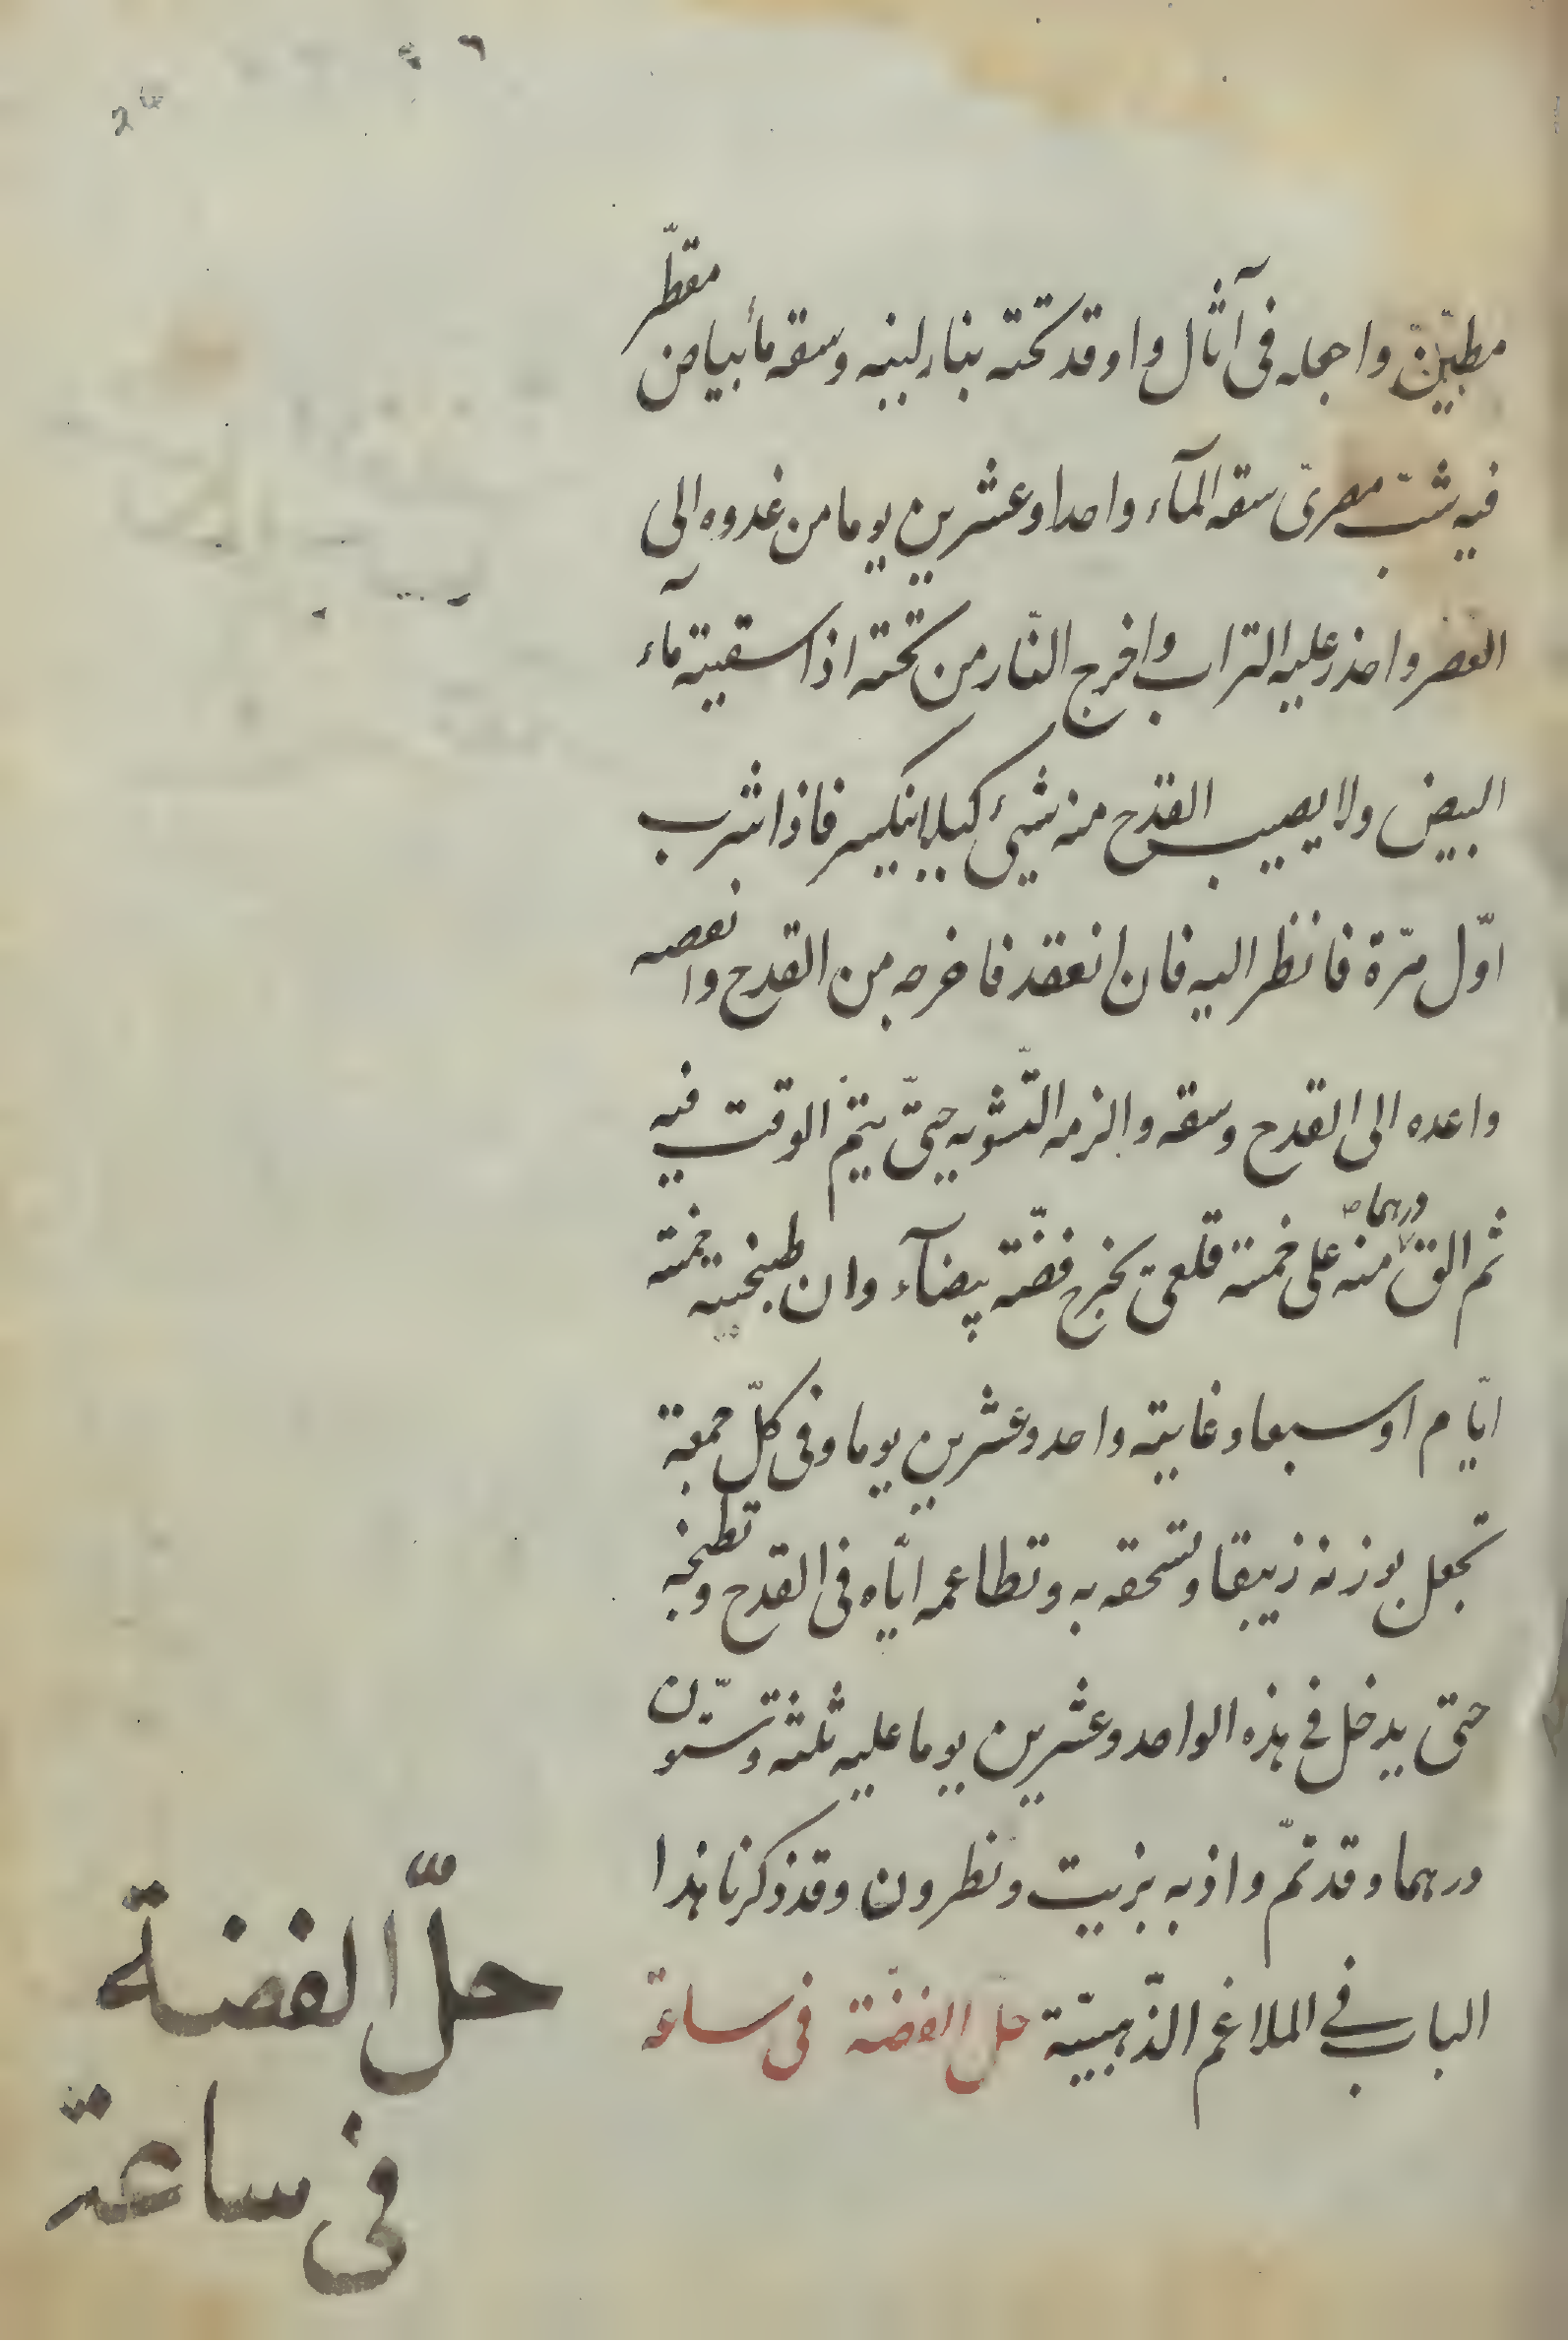 مطيّن واجعله فى آثال واوقد تحته بنار لينه وسقه مأبياض مقطّر
فيه شبّ مصرىّ سقه المآء واحدا وعشرين يوما من غدوه الى
العصر واحذر عليه التراب واخرج النّار من تحته اذا سقيته مآء
البيض ولا يصيب القدح منه شيئ كيلا ينكسر فاذا شرب
اوّل مرّة فانظر اليه فان انعقد فاخرجه من القدح وانعصه
واعده الى القدح وسقه والزمه التّشويه حتّى يتمّ الوقت فيه
ثم الق منه درهما على خمسة قلعىّ يخرج فضّة بيضآء وان طبخته خمسة
ايّام او سبعا وغايته واحد وعشرين يوما وفى كلّ جمعة
تجعل بوزنه زيبقا وتسحقه به وتطاعمه ايّاه فى القدح وتطبخه
حتى يدخل فى هذه الواحد وعشرين يوما عليه ثلثة وستّون
درهما وقد تمّ واذبه بزيت ونطرون وقد ذكرنا هذا
الباب فى الملاغم الذّهبيّة حلّ الفضّة فى ساعة
حلّ الفضة
فى ساعة